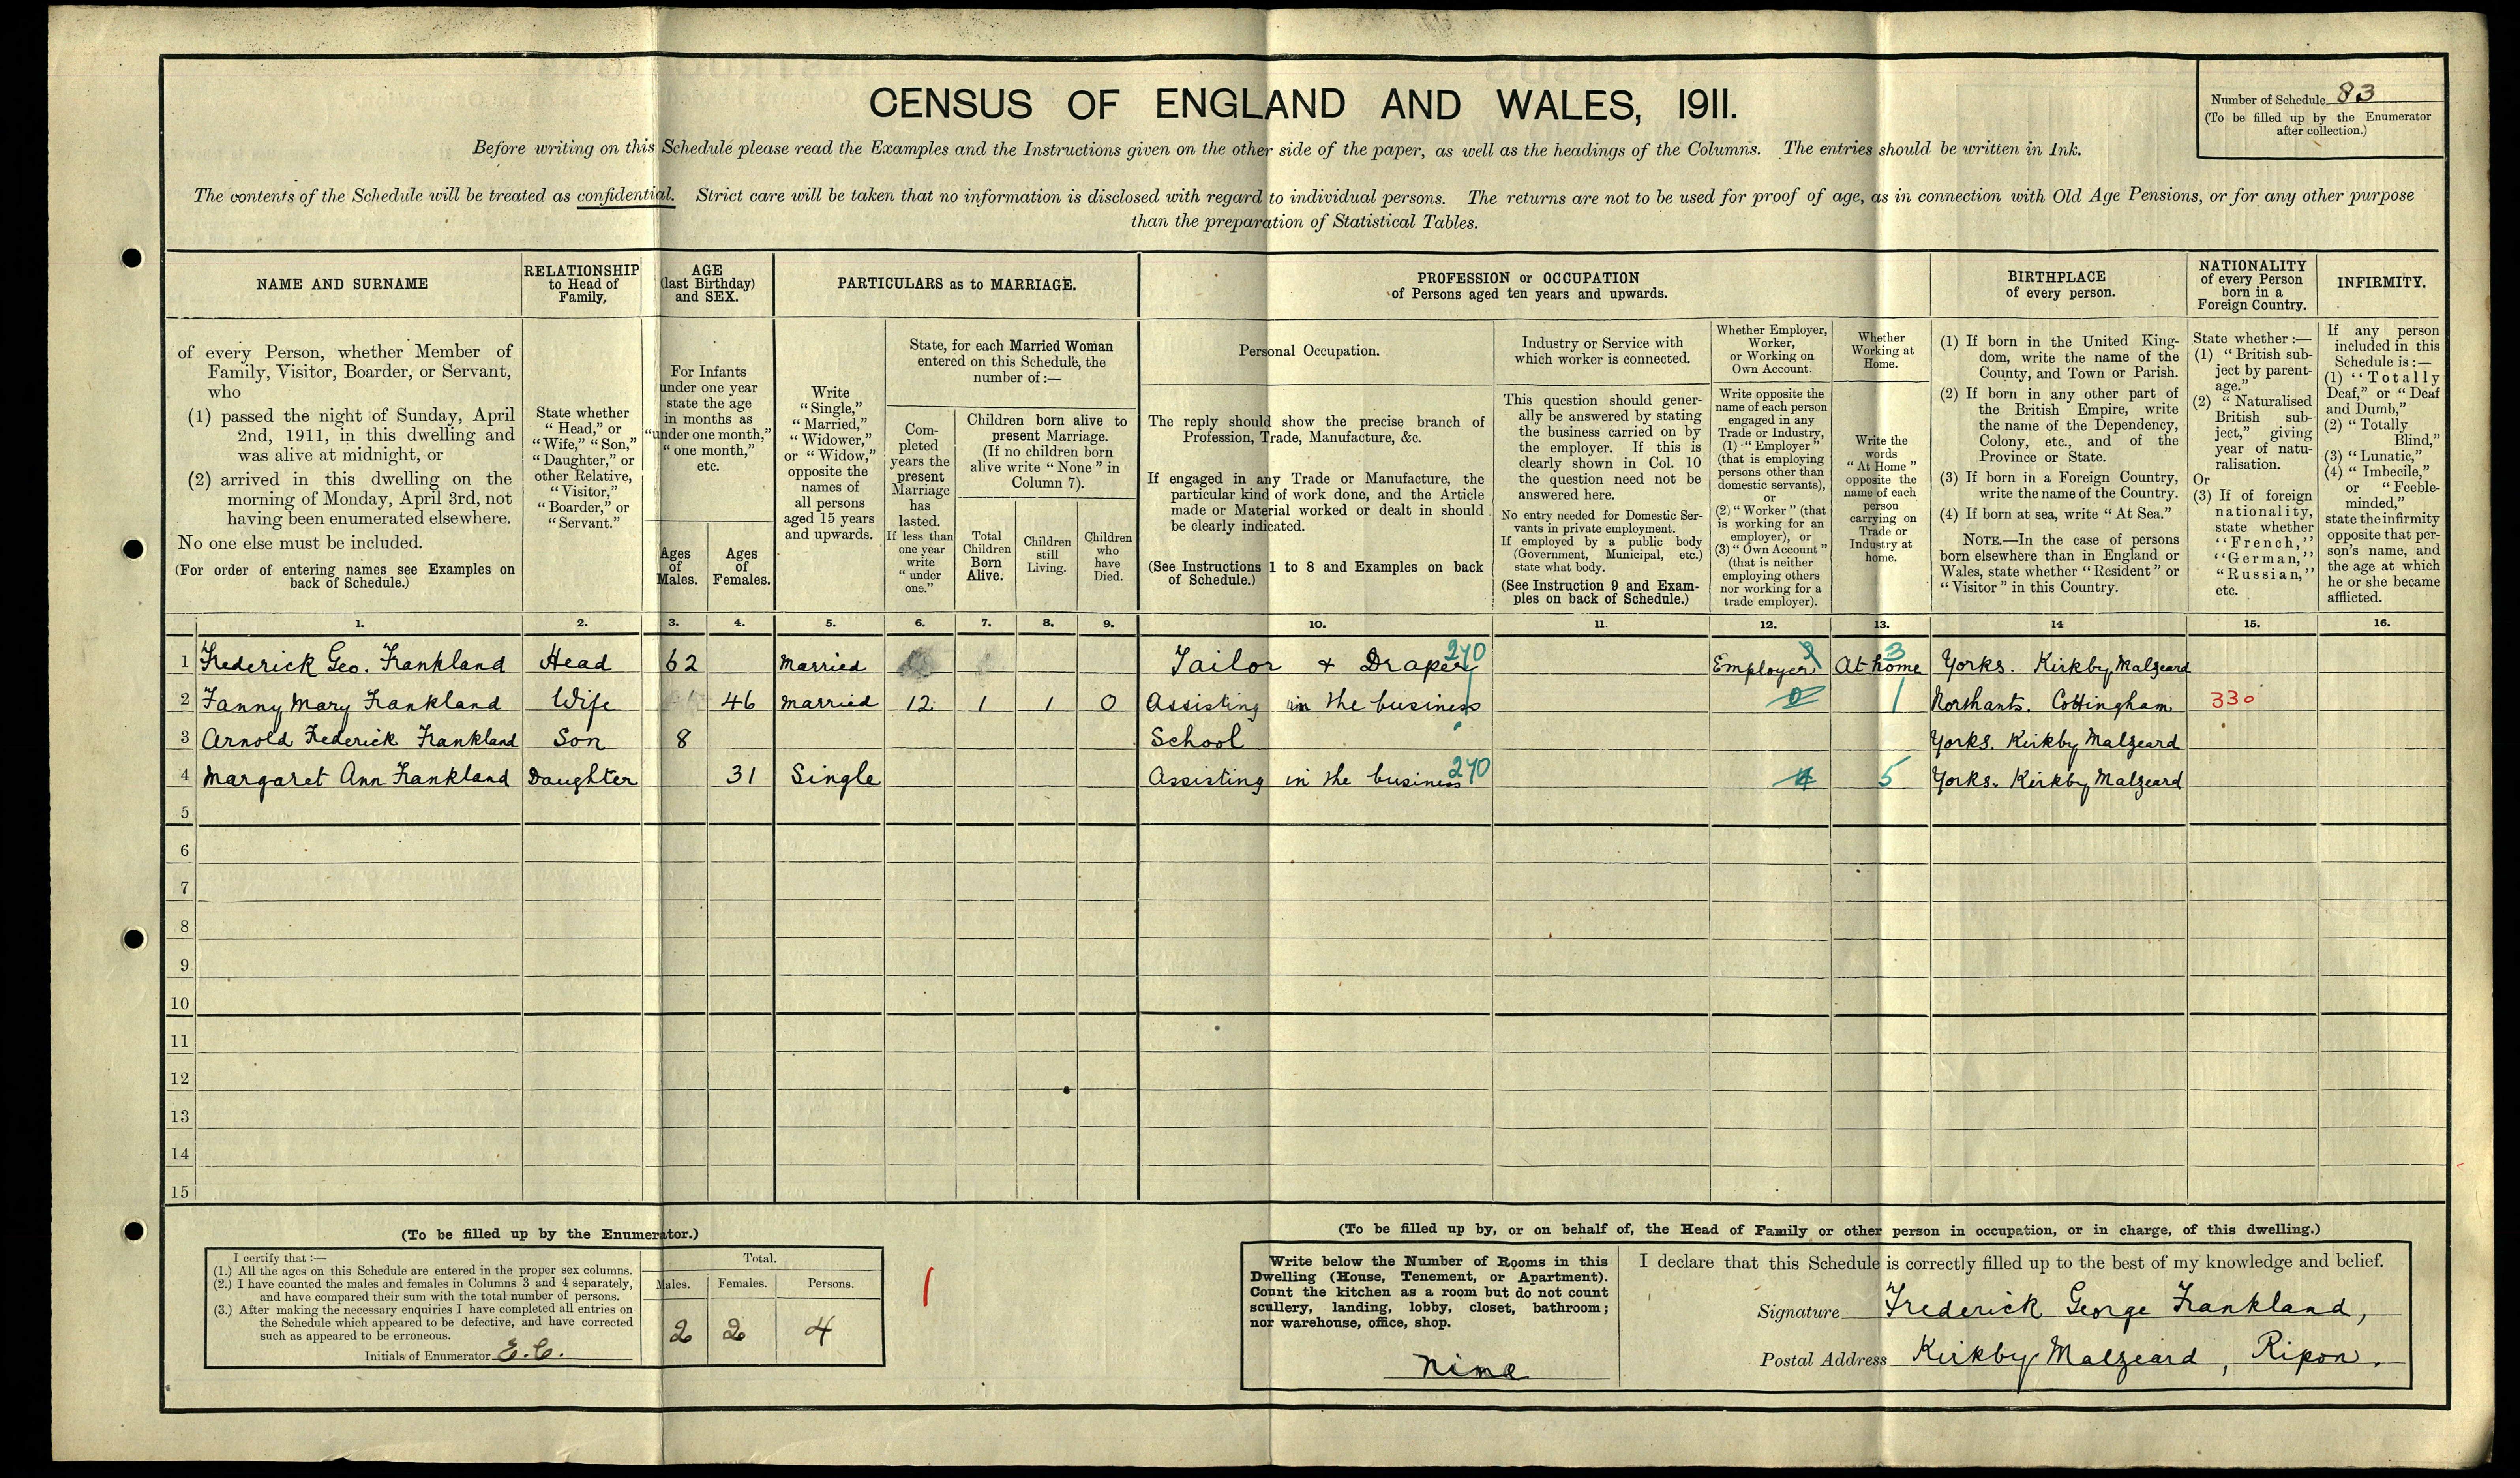 CENSUS OF ENGLAND AND WALES, 1911.
Number of Schedule 83
(To be filled up by the Enumerator
after collection.)
Before writing on this Schedule please read the Examples and the Instructions given on the other side of the paper, as well as the headings of the Columns. The entries should be written in Ink.
The contents of the Schedule will be treated as confidential. Strict care will be taken that no information is disclosed with regard to individual persons. The returns are not to be used for proof of age, as in connection with Old Age Pensions, or for any other purpose
than the preparation of Statistical Tables.
NAME AND SURNAME
of every Person, whether Member of
Family, Visitor, Boarder, or Servant,
who
(1) passed the night of Sunday, April
2nd, 1911, in this dwelling and
was alive at midnight, or
(2) arrived in this dwelling on the
morning of Monday, April 3rd, not
having been enumerated elsewhere.
No one else must be included.
(For order of entering names see Examples on
back of Schedule.)
RELATIONSHIP
to Head of
Family.
State whether
"Head," or
"Wife," "Son,"
"Daughter," or
other Relative,
"Visitor,"
"Boarder," or
"Servant."
AGE
(last Birthday)
and SEX.
For Infants
under one year
state the age
in months as
"under one month,"
"one month,"
etc.
Ages
of
Males.
Ages
of
Females.
PARTICULARS as to MARRIAGE.
Write
"Single,"
"Married,"
"Widower,"
or "Widow,"
opposite the
names of
all persons
aged 15 years
and upwards.
State, for each Married Woman
entered on this Schedule, the
number of:—
Com-
pleted
years the
present
Marriage
has
lasted.
If less than
one year
write
"under
one."
Children born alive to
present Marriage.
(If no children born
alive write "None" in
Column 7).
Total
Children
Born
Alive.
Children
still
Living.
Children
who
have
Died.
PROFESSION or OCCUPATION
of Persons aged ten years and upwards.
Personal Occupation.
The reply should show the precise branch of
Profession, Trade, Manufacture, &c.
If engaged in any Trade or Manufacture, the
particular kind of work done, and the Article
made or Material worked or dealt in should
be clearly indicated.
(See Instructions 1 to 8 and Examples on back
of Schedule.)
Industry or Service with
which worker is connected.
This question should gener-
ally be answered by stating
the business carried on by
the employer. If this is
clearly shown in Col. 10
the question need not be
answered here.
No entry needed for Domestic Ser-
vants in private employment.
If employed by a public body
(Government, Municipal, etc.)
state what body.
(See Instruction 9 and Exam-
ples on back of Schedule.)
Whether Employer,
Worker,
or Working on
Own Account.
Write opposite the
name of each person
engaged in any
Trade or Industry,
(1) "Employer"
(that is employing
persons other than
domestic servants),
or
(2) "Worker" (that
is working for an
employer), or
(3) "Own Account"
(that is neither
employing others
nor working for a
trade employer).
Whether
Working at
Home.
Write the
words
"At Home"
opposite the
name of each
person
carrying on
Trade or
Industry at
home.
BIRTHPLACE
of every person.
(1) If born in the United King-
dom, write the name of the
County, and Town or Parish.
(2) If born in any other part of
the British Empire, write
the name of the Dependency,
Colony, etc., and of the
Province or State.
(3) If born in a Foreign Country,
write the name of the Country.
(4) If born at sea, write "At Sea."
NOTE.—In the case of persons
born elsewhere than in England or
Wales, state whether "Resident" or
"Visitor" in this Country.
NATIONALITY
of every Person
born in a
Foreign Country.
State whether:—
(1) "British sub-
ject by parent-
age."
(2) "Naturalised
British sub-
ject," giving
year of natu-
ralisation.
Or
(3) If of foreign
nationality,
state whether
"French,"
"German,"
"Russian,"
etc.
INFIRMITY.
If any person
included in this
Schedule is:—
(1) "Totally
Deaf," or "Deaf
and Dumb,"
(2) "Totally
Blind,"
(3) "Lunatic,"
(4) "Imbecile,"
or "Feeble-
minded,"
state the infirmity
opposite that per-
son's name, and
the age at which
he or she became
afflicted.
1. 2. 3. 4. 5. 6. 7. 8. 9. 10. 11. 12. 13. 14 15. 16.
1 Frederick Geo. Frankland Head 62 Married Tailor & Draper 270 Employer At home 3 Yorks. Kirkby Malzeard
2 Fanny Mary Frankland Wife 46 Married 12 1 1 0 Assisting in the business 0 1 Northants. Cottingham 330
3 Arnold Frederick Frankland Son 8 School Yorks. Kirkby Malzeard
4 Margaret Ann Frankland Daughter 31 Single Assisting in the business 270 5 Yorks. Kirkby Malzeard
5
6
7
8
9
10
11
12
13
14
15
(To be filled up by the Enumerator.)
I certify that:—
(1.) All the ages on this Schedule are entered in the proper sex columns.
(2.) I have counted the males and females in Columns 3 and 4 separately,
and have compared their sum with the total number of persons.
(3.) After making the necessary enquiries I have completed all entries on
the Schedule which appeared to be defective, and have corrected
such as appeared to be erroneous.
Initials of Enumerator E.C.
Total.
Males. Females. Persons.
2 2 4
(To be filled up by, or on behalf of, the Head of Family or other person in occupation, or in charge, of this dwelling.)
Write below the Number of Rooms in this
Dwelling (House, Tenement, or Apartment).
Count the kitchen as a room but do not count
scullery, landing, lobby, closet, bathroom;
nor warehouse, office, shop.
Nine
I declare that this Schedule is correctly filled up to the best of my knowledge and belief.
Signature Frederick George Frankland,
Postal Address Kirkby Malzeard, Ripon.